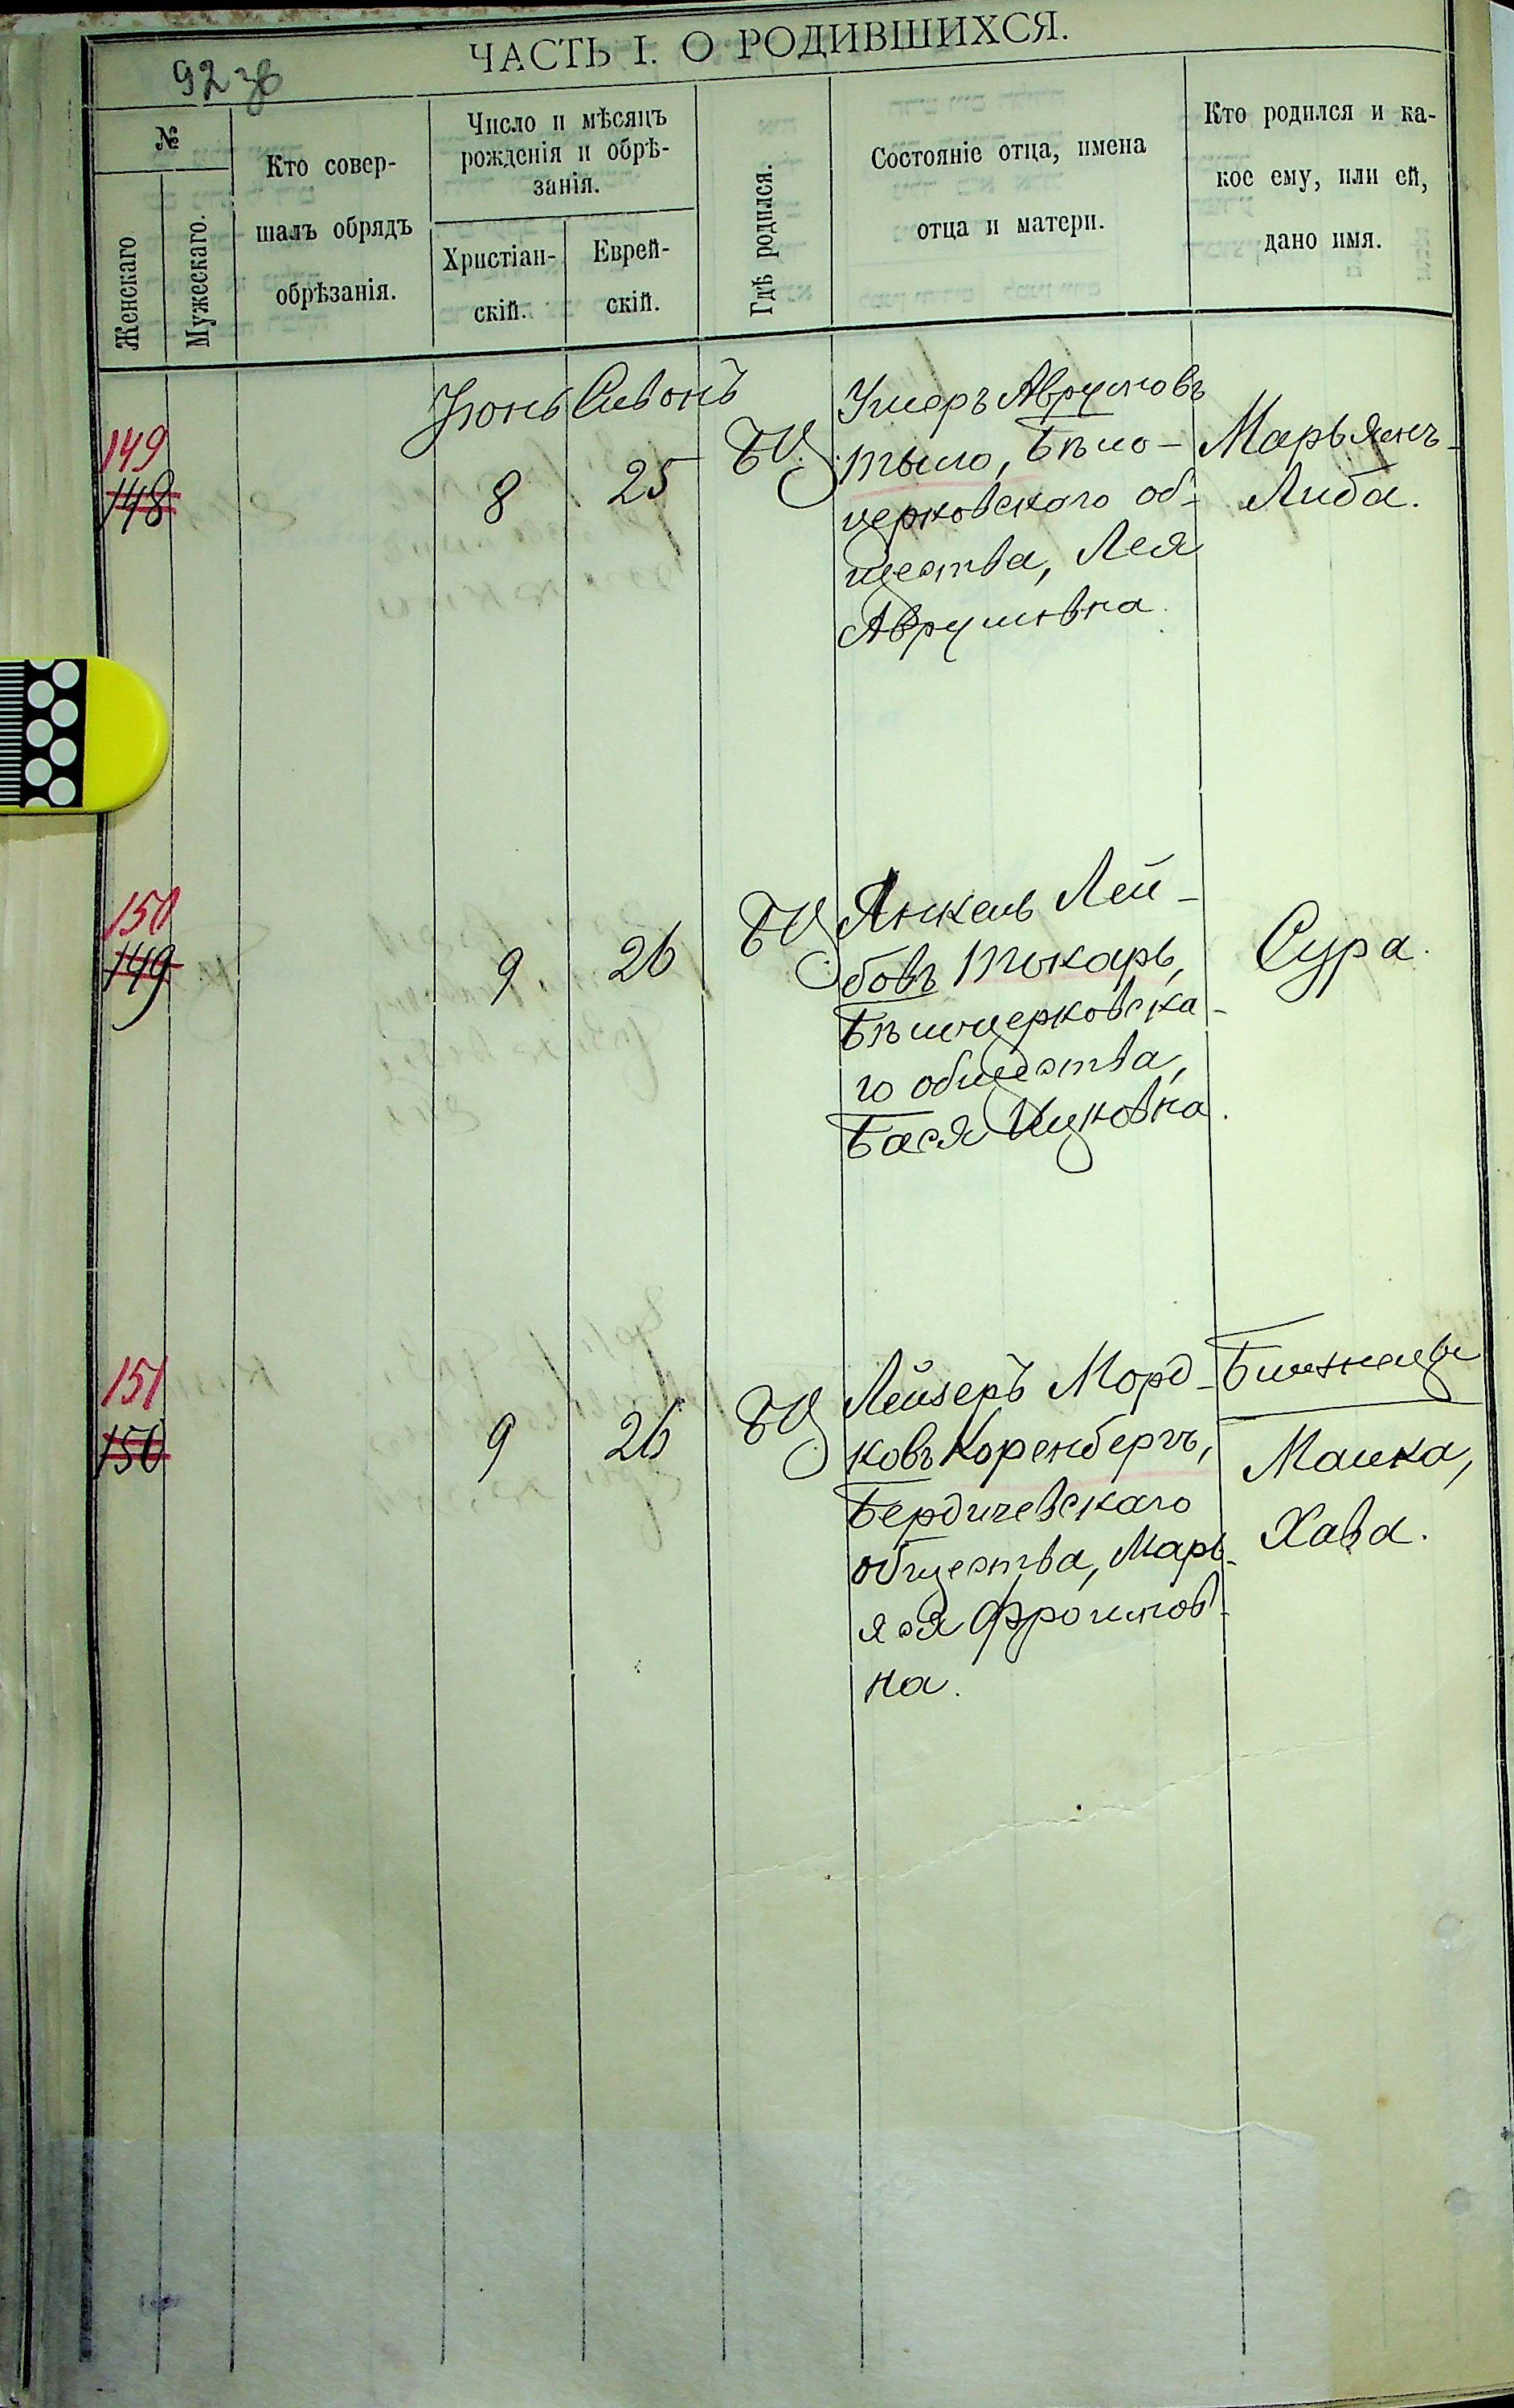 ЧАСТЬ I. О РОДИВШИХСЯ.
92 зв
№
Женскаго
Мужескаго.
Кто совер-
шалъ обрядъ
обрѣзанія.
Число и мѣсяцъ
рожденія и обрѣ-
занія.
Христіан-
скій.
Еврей-
скій.
Гдѣ родился.
Состояніе отца, имена
отца и матери.
Кто родился и ка-
кое ему, или ей,
дано имя.
Іюнь Сивонъ
149
148
8
25
БЦ.
Умеръ Аврумовъ
Тыло, Бѣло-
церковского об-
щества, Лея
Аврумовна.
Марьямъ-
Либа.
150
149
9
26
БЦ.
Янкель Лей-
бовъ Токарь,
Бѣлоцерковска-
го общества,
Бася Ицковна.
Сура.
151
150
9
26
БЦ.
Лейзеръ Морд-
ковъ Коренбергъ,
Бердичевскаго
общества, Марь-
яся Фроимов-
на.
Близнецы
Малка,
Хава.